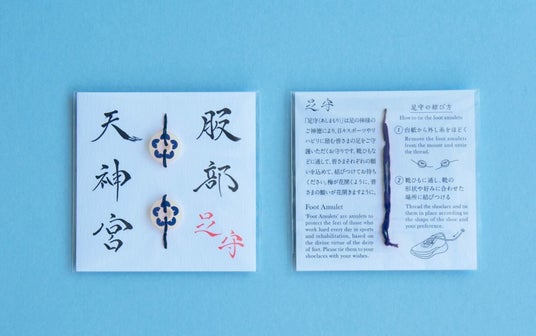 服部
天神宮
足守
足守
「足守(あしまもり)」は足の神様の
ご神徳により、日々スポーツやリ
ハビリに励む皆さまの足をご守
護いただくお守りです。靴ひもな
どに通して、皆さまそれぞれの願
いを込めて、結びつけてお持ち
ください。梅が花開くように、皆
さまの願いが花開きますように。
Foot Amulet
'Foot Amulets' are amulets to
protect the feet of those who
work hard every day in sports
and rehabilitation, based on
the divine virtue of the deity
of feet. Please tie them to your
shoelaces with your wishes.
足守の結び方
How to tie the foot amulets
① 台紙から外し糸をほどく
Remove the foot amulets
from the mount and untie
the thread.
② 靴ひもに通し、靴の
形状や好みに合わせた
場所に結びつける
Thread the shoelaces and tie
them in place according to
the shape of the shoe and
your preference.